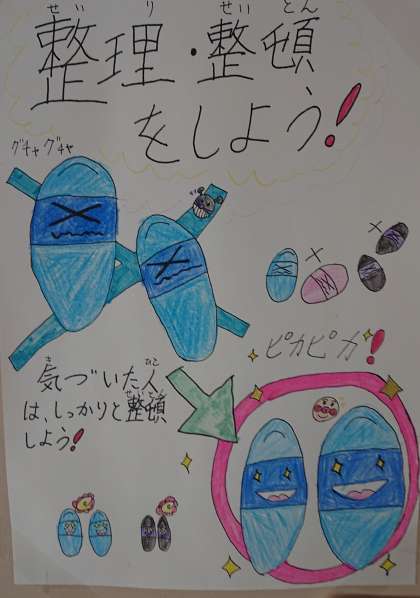 せい り せい とん
整理・整頓
をしよう!
グチャグチャ
ピカピカ!
き ひと
気づいた人
せいとん
は、しっかりと整頓
しよう!